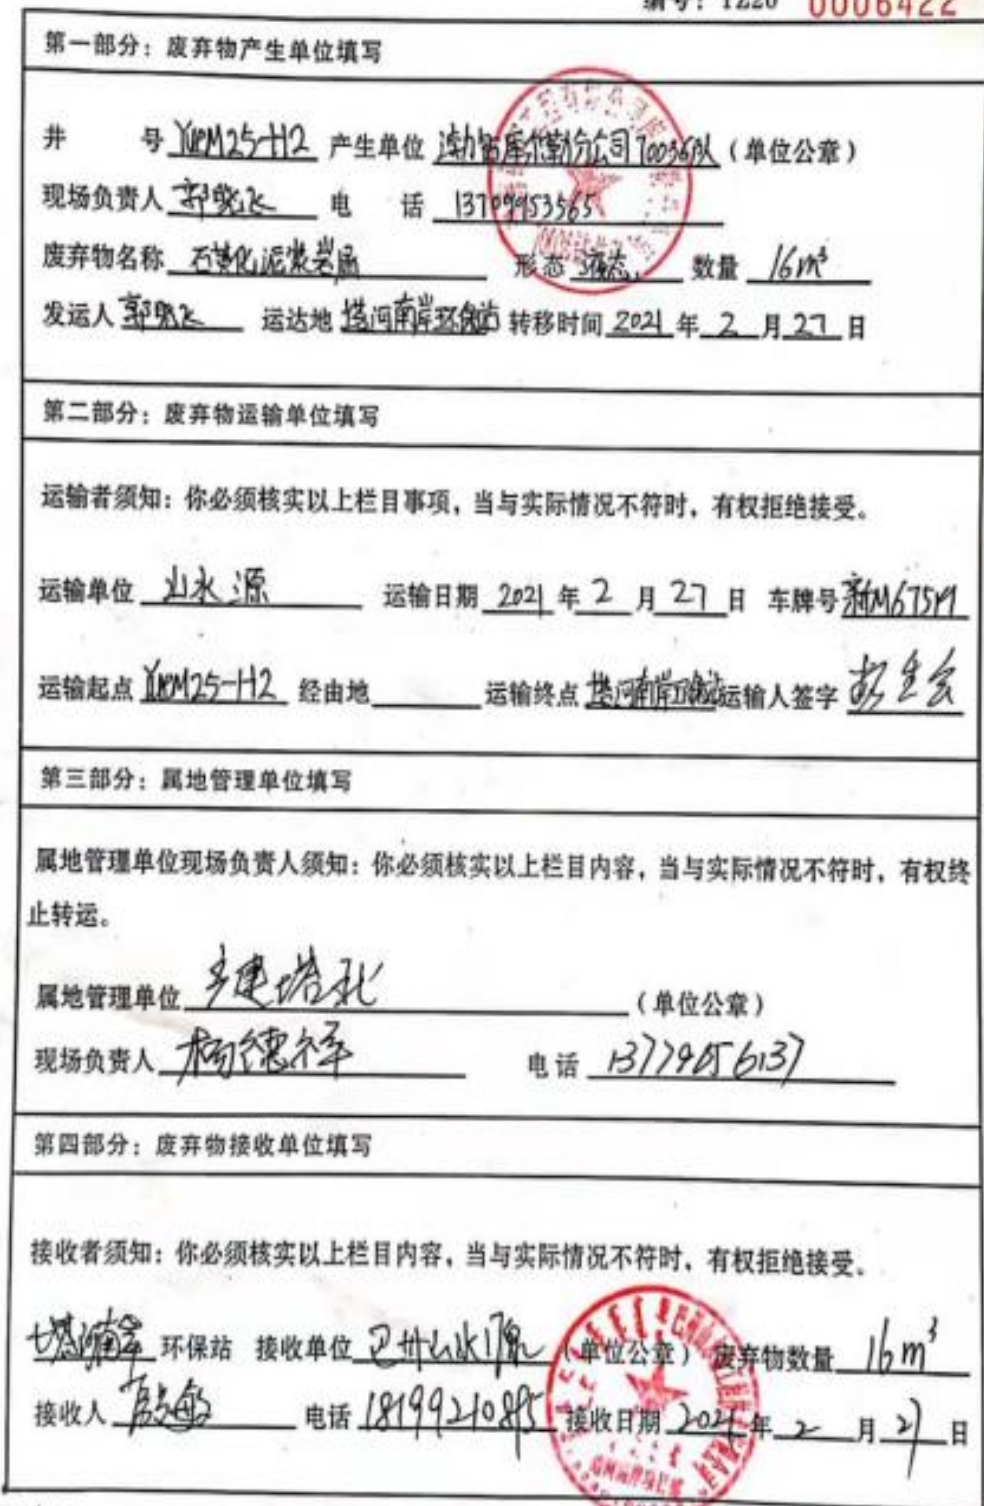 编号：TZ20 0006422
第一部分：废弃物产生单位填写
井 号 YUPM25-H2 产生单位 渤钻库尔勒分公司70036队（单位公章）
现场负责人 郭晓飞 电 话 13709953565
废弃物名称 石黄化泥浆岩屑 形态 液态 数量 16m³
发运人 郭晓飞 运达地 塔河南岸环保站 转移时间 2021 年 2 月 27 日
第二部分：废弃物运输单位填写
运输者须知：你必须核实以上栏目事项，当与实际情况不符时，有权拒绝接受。
运输单位 山水源 运输日期 2021 年 2 月 27 日 车牌号 新M675
运输起点 M25-H2 经由地 运输终点 塔河南岸环保站 运输人签字
第三部分：属地管理单位填写
属地管理单位现场负责人须知：你必须核实以上栏目内容，当与实际情况不符时，有权终
止转运。
属地管理单位 产建塔北 （单位公章）
现场负责人 杨德祥 电话 13779656137
第四部分：废弃物接收单位填写
接收者须知：你必须核实以上栏目内容，当与实际情况不符时，有权拒绝接受。
塔河南岸 环保站 接收单位 巴州山水源 （单位公章） 废弃物数量 16m³
接收人 电话 18199210895 接收日期 2021 年 2 月 27 日